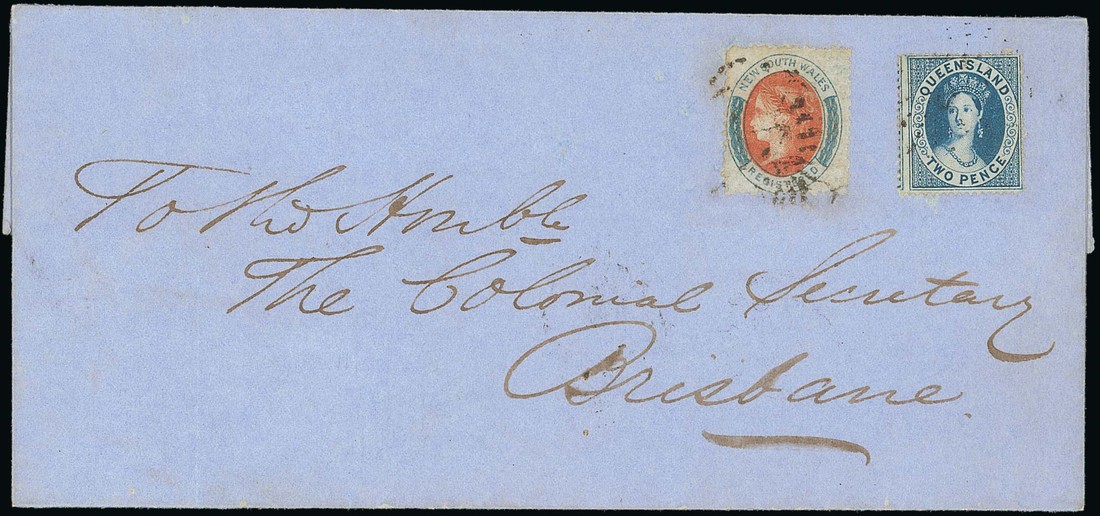 NEW SOUTH WALES
REGISTERED
QUEENSLAND
TWO PENCE
To The Honble
The Colonial Secretary
Brisbane